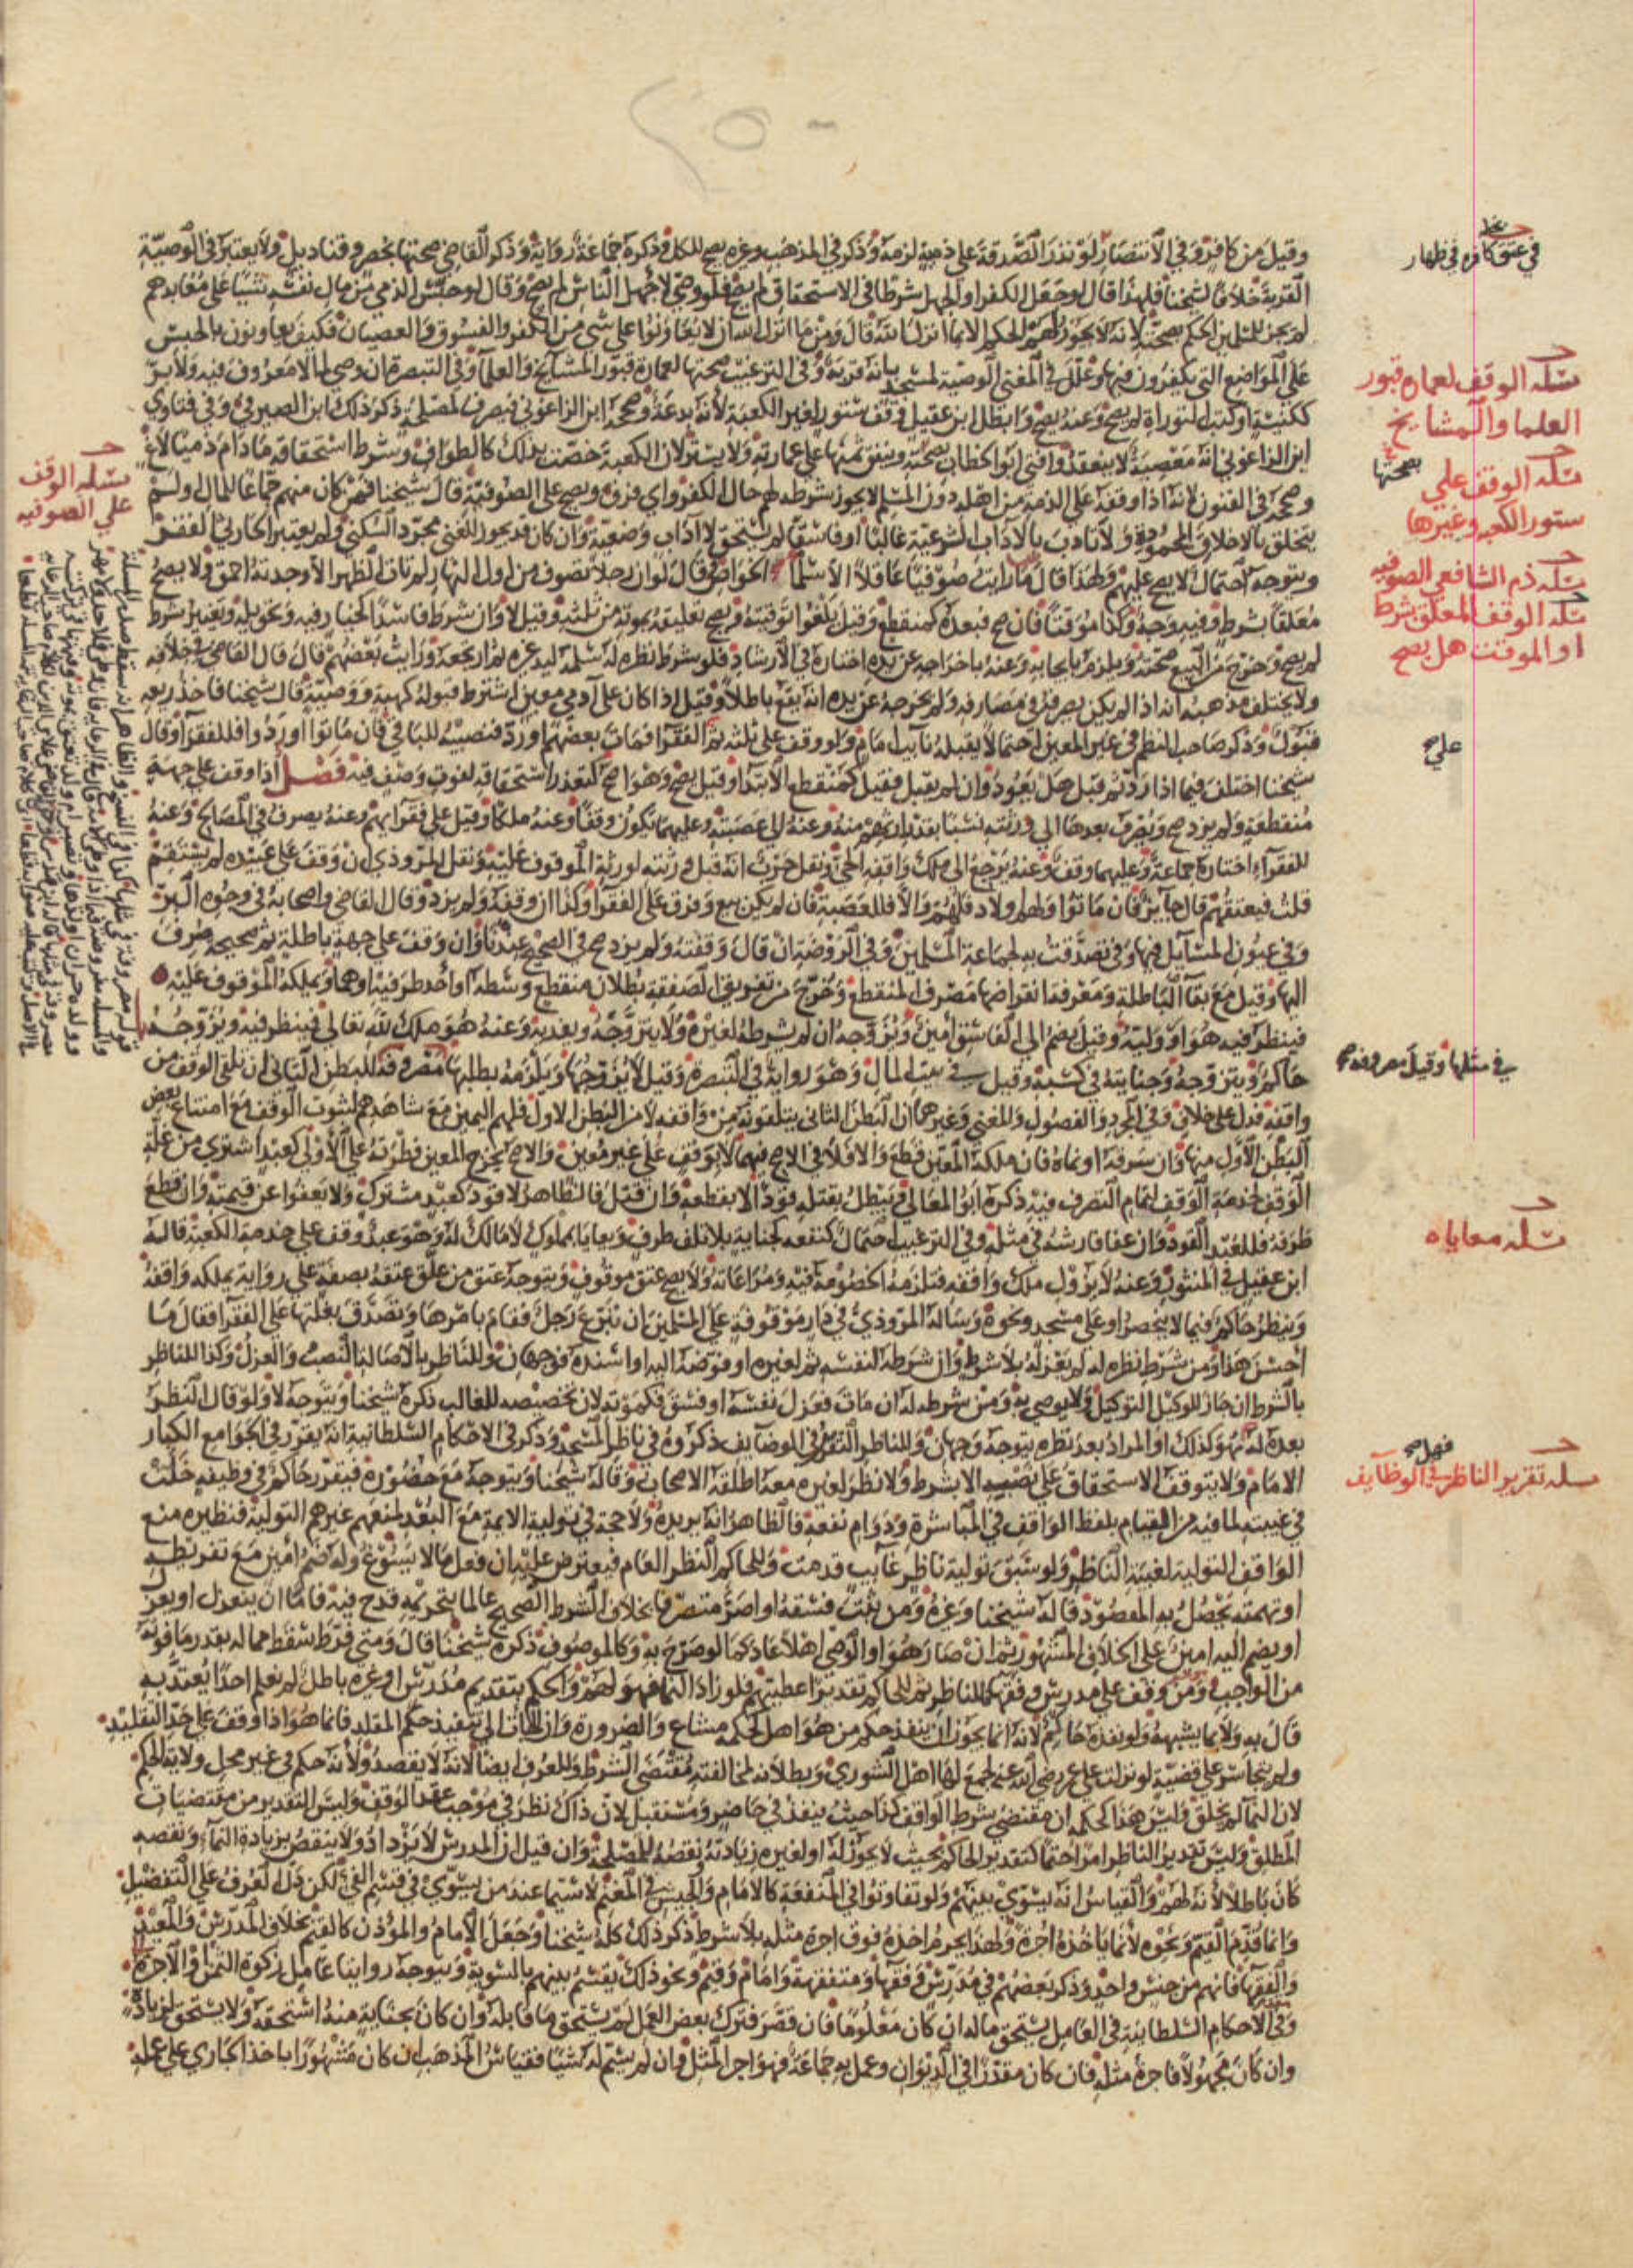 ٢٥٠
وقيل من كافر وفي الانتصار لو نذر الصدقة على ذمية لزمه وذكر في المذهب وغيره يصح للكل وذكره جماعة رواية وذكر القاضي صحتها بحصر وقناديل ولا يعتبر في الوصية
القربة خلافا لشيخنا فلهذا قال لو جعل الكفر او الجهل شرطا في الاستحقاق لم يصح فلو وصى لاجهل الناس لم يصح وقال لو حبس الذمي من مال نفسه شيئا على معابدهم
لم يجز للمسلمين الحكم بصحته لانه لا يجوز لهم الحكم الا بما انزل الله قال ومن ما انزل الله ان لا يعاونوا على شي من الكفر والفسوق والعصيان فكيف يعاونون بالحبس
على المواضع التي يكفرون فيها وعلل في المغني الوصية لمسجد بانه قربة وفي الترغيب صحتها لعمارة قبور المشايخ والعلما وفي التبصرة ان وصى لما لا معروف فيه ولا بر
ككنيسة او كتب التوراة لم يصح وعنه يصح وابطل ابن عقيل وقف ستور لغير الكعبة لانه بدعة وصححه ابن الزاغوني فيصرف لمصلحة ذكر ذلك ابن الصيرفي وفي فتاوي
ابن الزاغوني انه معصية لا ينعقد وافتى ابو الخطاب بصحته وينفق ثمنها على عمارته ولا يستر لان الكعبة خصت بذلك كالطواف وشرط استحقاقه ما دام ذميا لاغ
وصححه في الفنون لانه اذا وقفه على الذمة من اهله دون المسلم لا يجوز شرطه لهم حال الكفر واي فرق ويصح على الصوفية قال شيخنا فمن كان منهم جماعا للمال ولم
يتخلق بالاخلاق المحمودة ولا تادب بالاداب الشرعية غالبا او فاسقا لم يستحق لا اداب وضعية وان كان قد يجوز للغني مجرد السكنى ولم يعتبر الحارثي الفقر
ويتوجه احتمال لا يصح عليهم ولهذا قال ما رايت صوفيا عاقلا الا سلما الخواص وقال لو ان رجلا تصوف من اول النهار لم تات الظهر الا وجدته احمق ولا يصح
معلقا بشرط وفيه وجه وكذا موقتا فان صح فبعده كمنقطع وقيل يلغوا توقيته ويصح تعليقه بموته من ثلثه وقيل لا وان شرط فاسدا كخيار فيه وتحويله وتغيير شرط
لم يصح وخرج من البيع صحته ويلزم بايجابه وعنه باخراجه عن يده اختاره في الارشاد فلو شرط نظره له سلمه ليد غيره ثم ارتجعه ورايت بعضهم قال قال القاضي في خلافه
ولا يختلف مذهبه انه اذا لم يكن يصرفه في مصارفه ولم يخرجه عن يده انه يقع باطلا وقيل اذا كان على ادمي معين اشترط قبوله كهبة ووصية قال شيخنا فاخذ ريعه
قبول وذكر صاحب النظم في غير المعين احتمالا يقبله نايب امام ولو وقف على ثلثة ثم الفقرا فمات بعضهم او رد فنصيبه للباقي فان ماتوا او ردوا فللفقرا وقال
شيخنا اختلف فيما اذا رد ثم قبل هل يعود وان لم يقبل فقيل كمنقطع الابتدا وقيل يصح وهو اصح كتعذر استحقاقه لفوت وصف فيه فصل اذا وقف على جهة
منقطعة ولم يزد صح ويصرف بعدها الي ورثته نسبا بقدر ارثهم منه وعنه الي عصبته وعليهما يكون وقفا وعنه ملكا وقيل على فقرايهم وعنه يصرف في المصالح وعنه
للفقرا اختاره جماعة وعليهما وقف وعنه يرجع الى ملك واقفه الحي ونقل حرب انه قبل ورثته لورثة الموقوف عليه ونقل المروذي ان وقف على عبيده لم يستقم
قلت فيعتقهم قال جايز فان ماتوا ولهم اولاد فلهم والا فللعصبة فان لم يكن بيع وفرق على الفقرا وكذا ان وقفه ولم يزد وقال القاضي واصحابه في وجوه البر
وفي عيون المسايل فيها وفي تصدقت به لجماعة المسلمين وفي الروضة ان قال وقفته ولم يزد صح في الصحيح عندنا وان وقف على جهة باطلة ثم صحيحه صرف
اليها وقيل مع بقا الباطلة ومعرفة انقراضها مصرف المنقطع وخرج من تفريق الصفقة بطلان منقطع وسطه او احد طرفيه او هما ويملكه الموقوف عليه
فينظر فيه هو او وليه وقيل يضم الي الفاسق امين ويزوجه ان لم يشرطه لغيره ولا يتزوجه ويفديه وعنه هو ملك لله تعالى فينظر فيه ويزوجه
حاكم ويتزوجه وجنايته في كسبه وقيل في بيت المال وهو رواية في التبصرة وقيل لا يزوجها ويلزمه بطلبها مصروفة للبطن الثاني ان تلقى الوقف من
واقفه فدل على خلاف وفي المجرد والفصول والمغني وغيرهما ان البطن الثاني يتلقونه من واقفه لا من البطن الاول فلهم اليمين مع شاهدهم لثبوت الوقف مع امتناع بعض
البطن الاول منها وان سرقه او نماه فان ملكه المعين قطع والا فلا في الاصح فيهما لا بوقف على غير معين والاصح يخرج المعين فطرته على الاولى كعبد اشتري من غلة
الوقف لخدمة الوقف لتمام التصرف فيه ذكره ابو المعالي ويبطل بقتله قودا لا بقطعه وان قتل فالظاهر لا قود كعبد مشترك ولا يعفوا عن قيمته وان قطع
طرفه فللعبد القود وان عفا فارشه في مثله وفي الترغيب احتمال كنفعه كجناية بلا تلف طرف ويعايا بمملوك لا مالك له وهو عبد وقف على خدمة الكعبة قاله
ابن عقيل في المنثور وعنه لا يزول ملك واقفه فتلزمه الخصومة فيه ومراعاته ولا يصح عتق موقوف ويتوجه عتق من علق عتقه بصفة على رواية يملكه واقفه
وينظر حاكم فيما لا ينحصر او على مسجد ونحوه وساله المروذي في دار موقوفة على المسلمين ان تبرع رجل فقام بامرها وتصدق بغلتها على الفقرا فقال ما
احسن هذا ومن شرط نظره له لم يعزله بلا شرط وان شرطه لنفسه ثم لغيره او فوضه اليه او اسنده فوجهان وللناظر بالاصالة النصب والعزل وكذا للناظر
بالشرط ان جاز للوكيل التوكيل ولا يوصي به ومن شرطه له ان مات فعزل نفسه او فسق فكموته لان تخصيصه للغالب ذكره شيخنا ويتوجه لا ولو قال النظر
بعده له فهو كذلك او المراد بعد نظره يتوجه وجهان وللناظر التقرير في الوضايف ذكروه في ناظر المسجد وذكر في الاحكام السلطانية انه يقرر في الجوامع الكبار
الامام ولا يتوقف الاستحقاق على نصبه الا بشرط ولا نظر لغيره معه اطلقه الاصحاب وقاله شيخنا ويتوجه مع حضوره فيقرر حاكم في وظيفة خلت
في غيبته لما فيه من القيام بلفظ الواقف في المباشرة ودوام نفعه فالظاهر انه يريده ولا حجة في تولية الايمة مع البعد لمنعهم غيرهم التولية فنظيره منع
الواقف التولية لغيبة الناظر ولو سبق تولية ناظر غايب قدمت وللحاكم النظر العام فيعترض عليه ان فعل ما لا يسوغ وله ضم امين مع تفريطه
او تهمته يحصل به المقصود قاله شيخنا وغيره ومن يثبت فسقه او اصر متصرفا بخلاف الشرط الصحيح عالما بتحريمه قدح فيه فاما ان ينعزل او يعزل
او يضم اليه امين على الخلاف المشهور ثم ان صار هو او الوصي اهلا عاد كما لو صرح به وكالموصوف ذكره شيخنا قال ومتى فرط سقط مما له بقدر ما فوته
من الواجب ومن وقف على مدرس وفقها فللناظر ثم للحاكم تقدير اعطيتهم فلو زاد النما فهو لهم والحكم بتقديم مدرس او غيره باطل لم نعلم احدا يعتد به
قال به ولا بما يشبهه ولو نفذه حاكم لانه انما يجوز ان ينفذ حكم من هو اهل لحكمه مشاع والضرورة وان الجات الى تنفيذ حكم المقلد فانما هو اذا وقف على حد التقليد
ولم يتجاسر على قضية لو نزلت على عمر رضي الله عنه لجمع لها اهل الشورى وبطلانه لمخالفته مقتضى الشرط وللعرف ايضا لانه لا يقصد ولانه حكم في غير محل ولاية الحكم
لان النما لم يخلق وليس هذا كحكمه ان مقتضى شرط الواقف كذا حيث ينفذ في حاضر ومستقبل لان ذاك نظر في موجب عقد الوقف وليس التقدير من مقتضيات
المطلق وليس تقدير الناظر امرا حتما كتقدير الحاكم بحيث لا يجوز له او لغيره زيادته ونقصه للمصلحة وان قيل ان المدرس لا يزداد ولا ينقص بزيادة النما ونقصه
كان باطلا لانه لهم والقياس انه يسوى بينهم ولو تفاوتوا في المنفعة كالامام والجيش في المغنم لا سيما عند من يسوي في قسم الفي لكن دل العرف على التفضيل
وانما قدم القيم ونحوه لانما ياخذه اجرة ولهذا يحرم اخذه فوق اجرة مثله بلا شرط ذكر ذلك كله شيخنا وجعل الامام والموذن كالقيم بخلاف المدرس والمعيد
والفقها فانهم من جنس واحد وذكر بعضهم في مدرس وفقها ومتفقهة وامام وقيم ونحو ذلك يقسم بينهم بالسوية ويتوجه روايتا عامل زكوة الثمن او الاجرة
وفي الاحكام السلطانية في العامل يستحق ماله ان كان معلوما فان قصر فترك بعض العمل لم يستحق ما قابله وان كان بجناية منه استحقه ولا يستحق لزيادة
وان كان مجهولا فاجرة مثله فان كان مقدرا في الديوان وعمل به جماعة فهو اجر المثل وان لم يسم له شيئا فقياس المذهب ان كان مشهورا باخذ الجاري على عمله
في عتق كافره في ظهار
مسئلة الوقف لعمارة قبور
العلما والمشايخ
بصحتها
مسئلة الوقف على
ستور الكعبه وغيرها
مسئلة ذم الشافعي الصوفيه
مسئلة الوقف المعلق بشرط
او الموقت هل يصح
على
في مثلها وقيل مصروفة
مسئلة معاياه
فصل
مسئلة تقرير الناظر في الوظايف
مسئلة الوقف
على الصوفيه